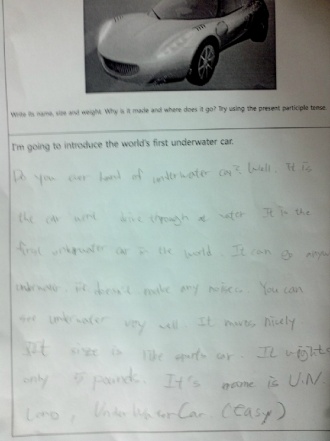 Write its name, size and weight. Why is it made and where does it go? Try using the present participle tense.
I'm going to introduce the world's first underwater car.
Do you ever heard of underwater car? Well, It is
the car drive through water It is the
first underwater car in the world. It can go
underwater. It doesn't make any noises. You can
see underwater very well. It moves nicely.
It sizes is like sports car. It weight
only 5 pounds. It's name is U.N
Underwater Car. (easy)